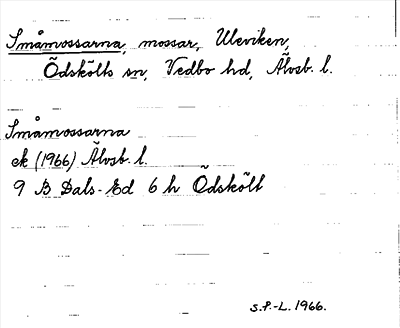 Småmossarna, mossar, Uleviken,
Ödskölts sn, Vedbo hd, Älvsb. l.
Småmossarna
ek (1966) Älvsb. l.
9 B Dals-Ed 6 h Ödskölt
S.F.-L. 1966.